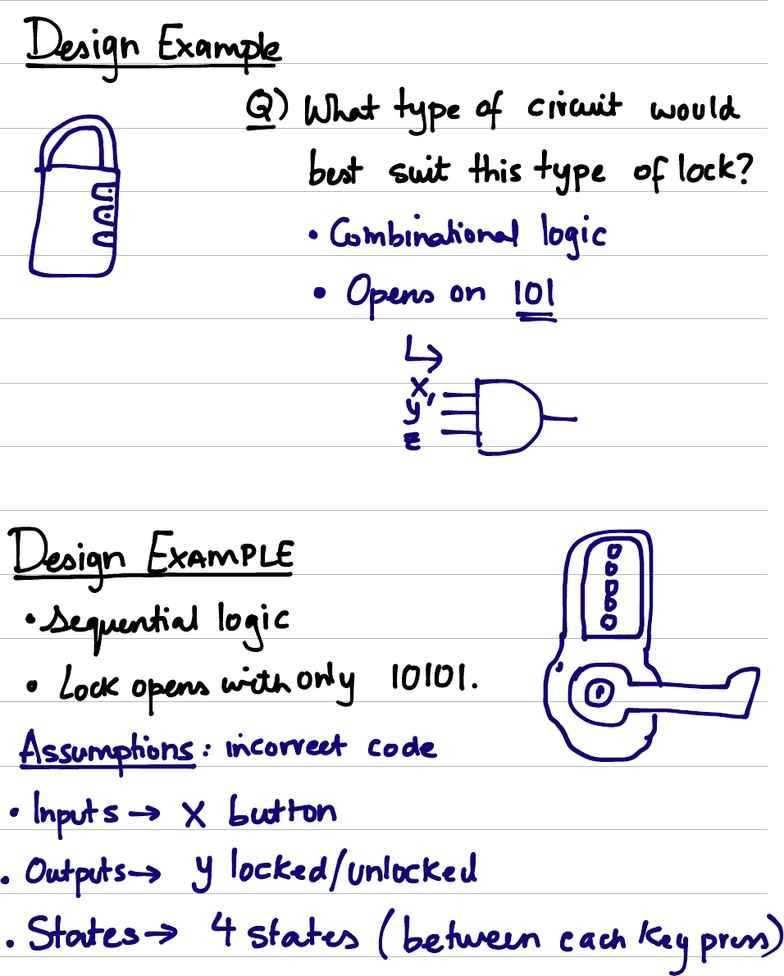 Design Example
Q) What type of circuit would
best suit this type of lock?
• Combinational logic
• Opens on 101
x
y'
z
Design EXAMPLE
• Sequential logic
• Lock opens with only 10101.
Assumptions: incorrect code
• Inputs → X button
• Outputs → y locked/unlocked
• States → 4 states (between each key press)